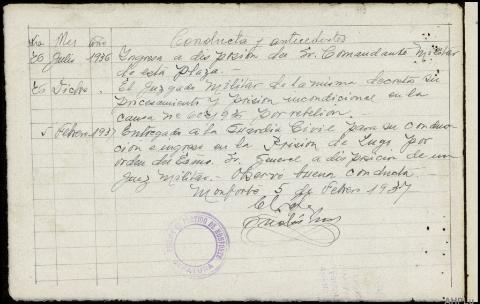 Dia Mes año Conducta y antecedentes
30 Julio 1936 Ingresa a disposición del Sr. Comandante Militar
de esta plaza.
El Juzgado Militar de la misma decreta su
procesamiento y prisión incondicional en la
causa nº por rebelion.
5 Febrero 1937 Entregado a la Guardia Civil para su conduc
ción e ingreso en la Prisión de Lugo por
orden del Excmo. Sr. General a disposición de un
Juez Militar.- Observó buena conducta.
Monforte 5 de Febrero 1937
El Jefe
JEFATURA